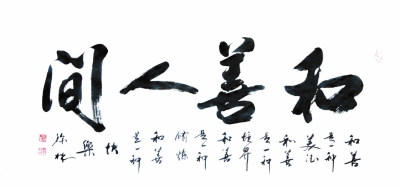 和善人间
和善
是一种
美德
和善
是一种
境界
和善
是一种
修炼
和善
是一种
快
樂